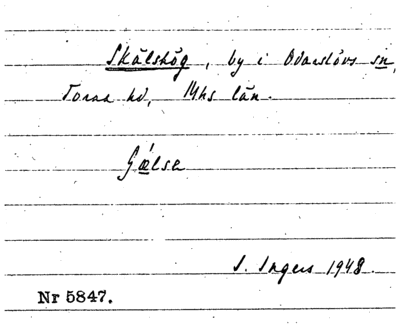 Skälshög, by i Odarslövs sn,
Torna hd, Mhs län.
Gälse
I. Ingers 1948.
Nr 5847.